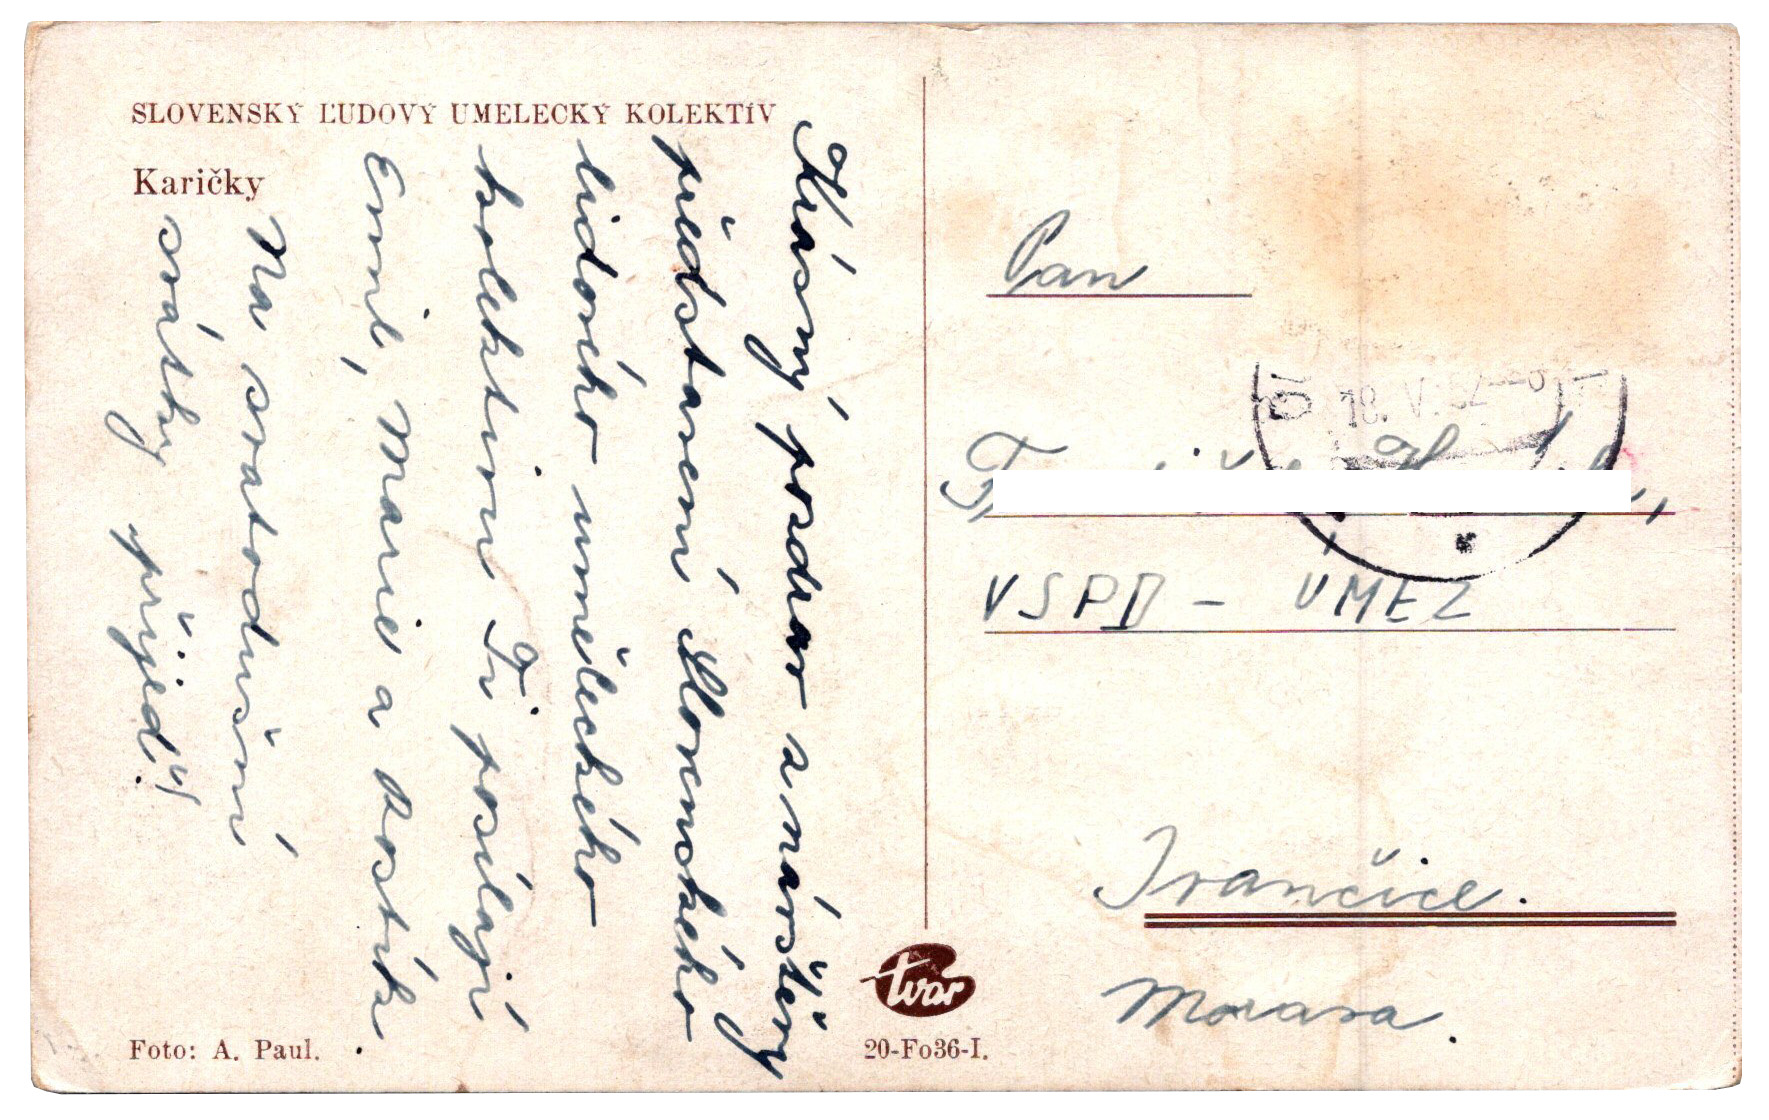 SLOVENSKÝ ĽUDOVÝ UMELECKÝ KOLEKTÍV
Karičky
Krásný pozdrav z návštěvy
představení Slovenského
lidového uměleckého
kolektivu Ti posílají
Emil, Marie a Rostík.
Na svatodušní
svátky přijeď!
Foto: A. Paul.
tvar
20-Fo36-I.
Pan
18. V. 52
VSPD - ÚMEZ
Ivančice.
Morava.